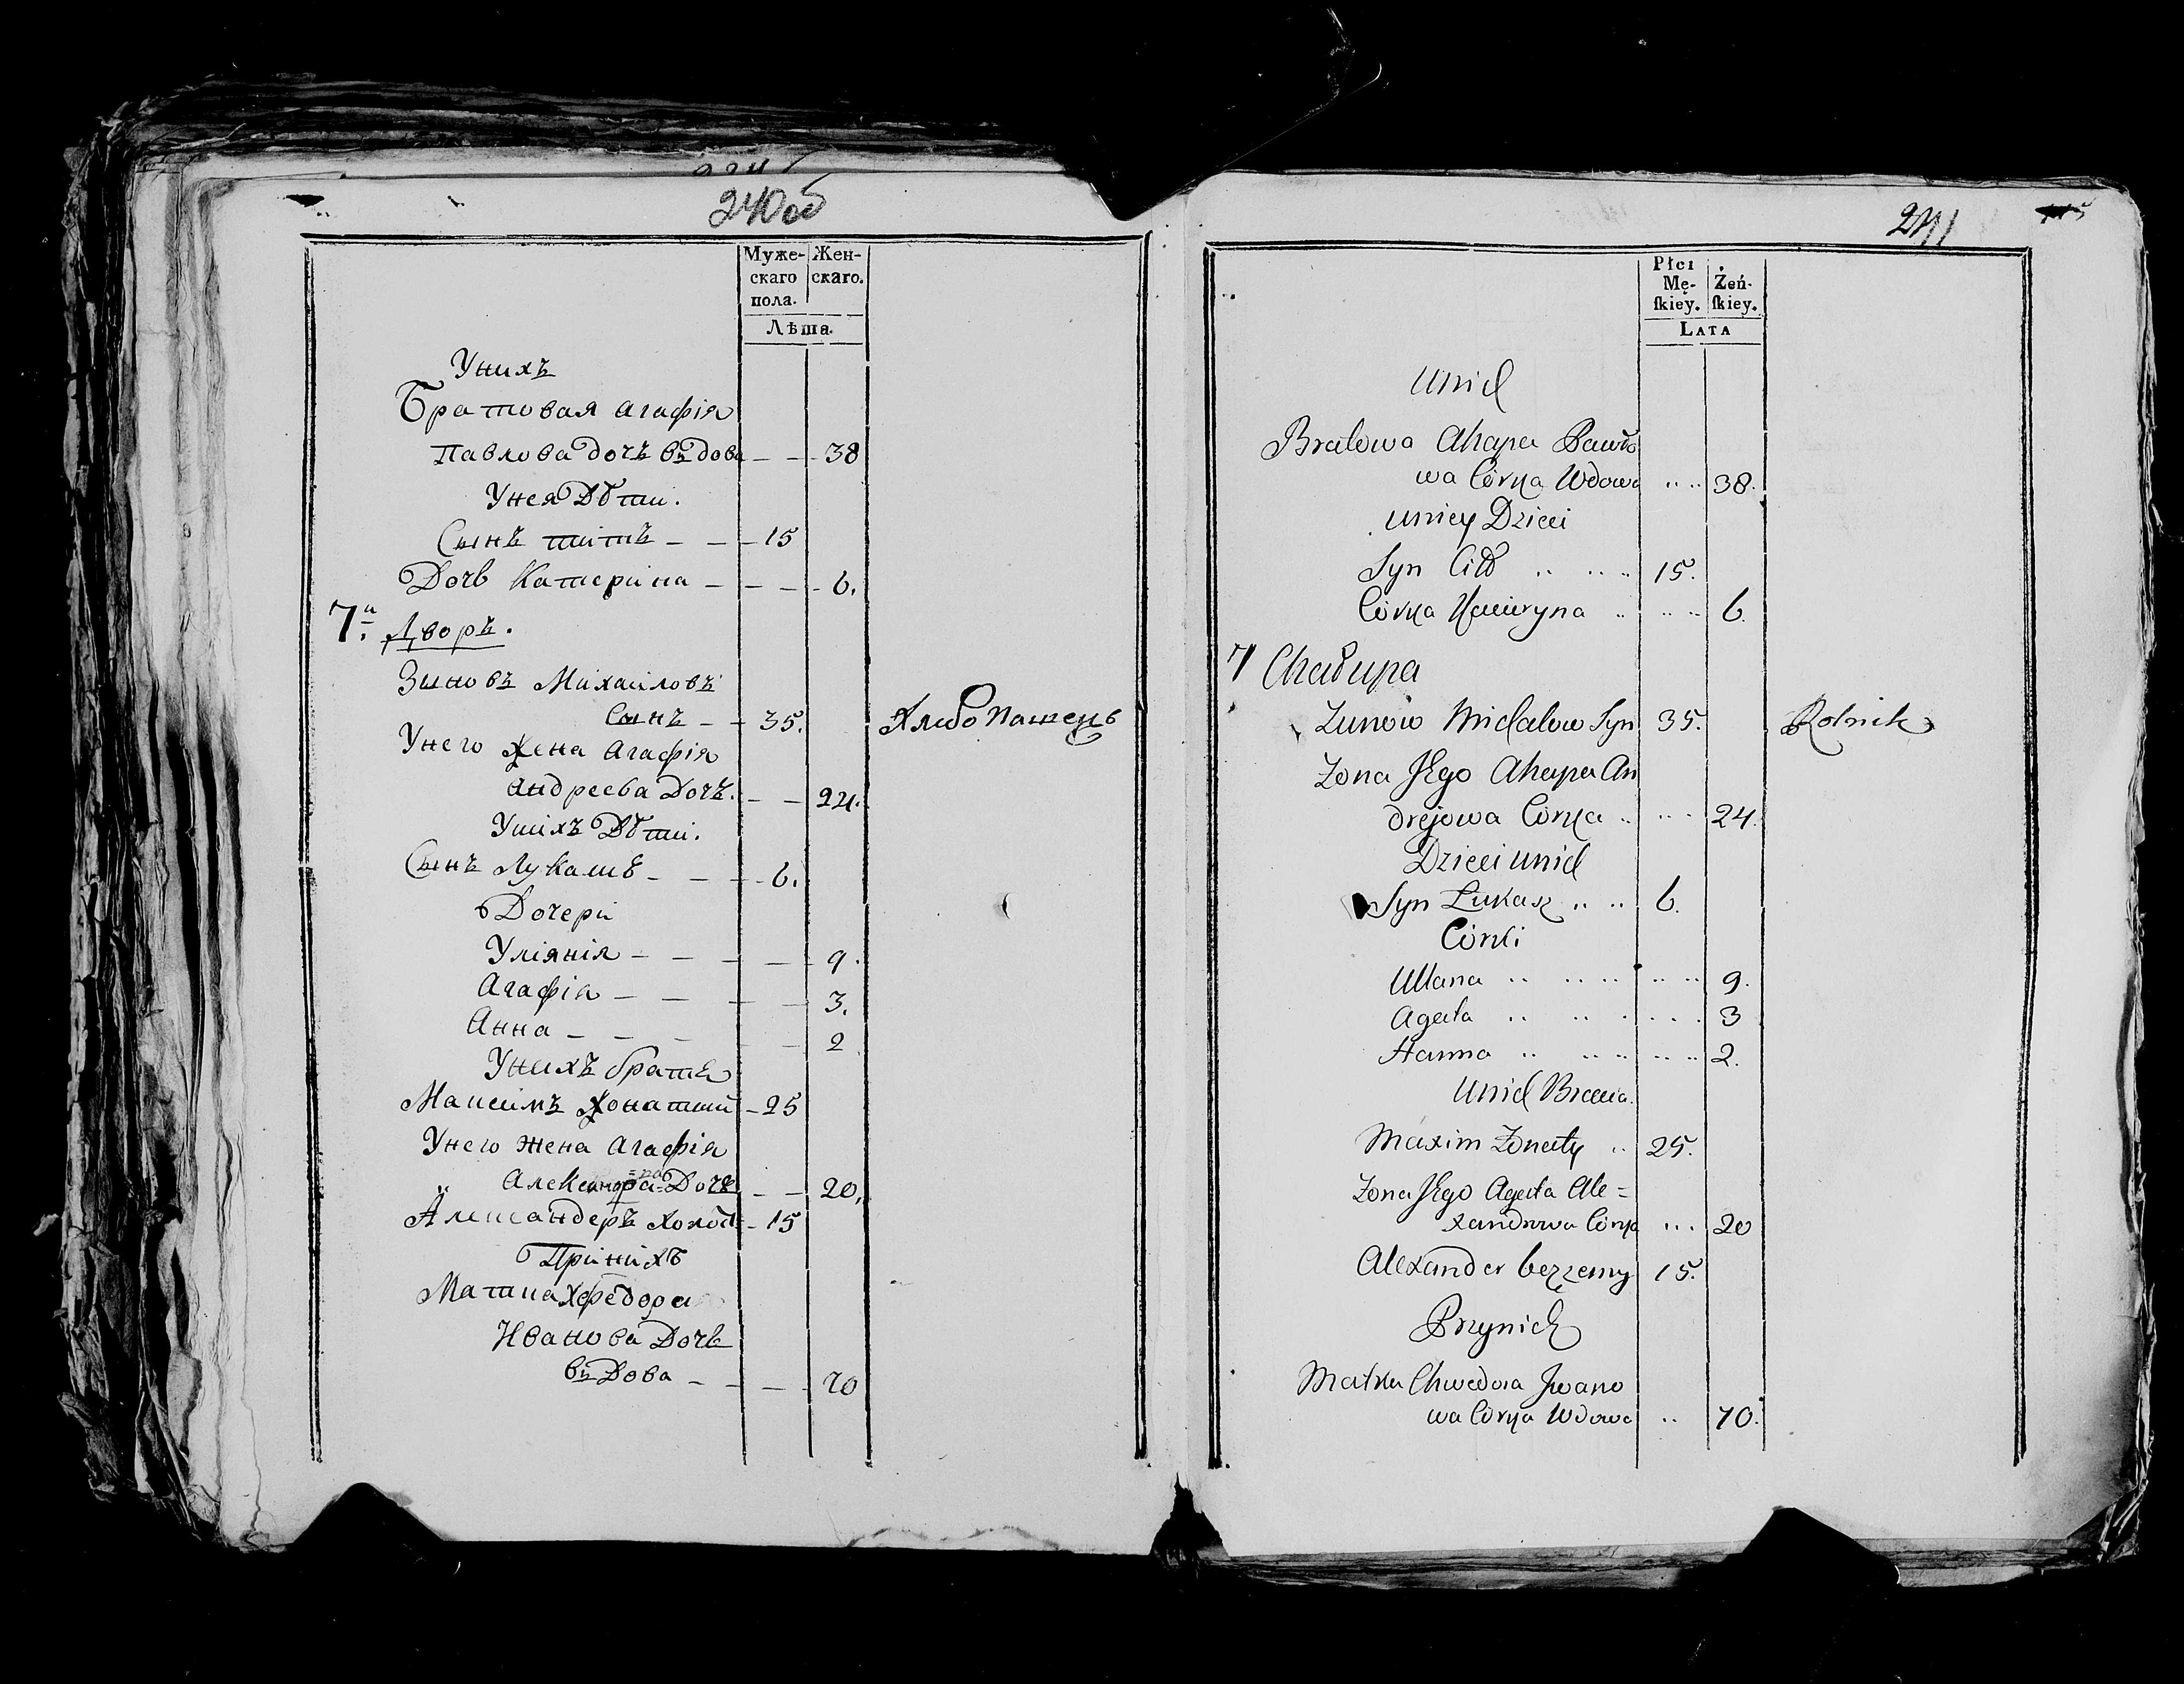 240об
Муже-
скаго
пола.
Жен-
скаго.
Лѣта.
Унихъ
Братовая Агафія
Павлова дочъ въдова — — 38
Унея Дѣти.
Сынъ титъ — — 15
Дочь Катеріна — — — 6.
7й Дворъ.
Зиновъ Михаиловъ
сынъ — — 35. Хлѣбопашецъ
Унего Жена Агафія
Андреева Дочъ. — — 24.
Унихъ Дѣти.
Сынъ Лукашъ — — — 6.
Дочери
Уліянія — — — — 9.
Агафія — — — — 3.
Анна — — — — — 2
Унихъ братъя
Максимъ Жонатий — 25
Унего жена Агафія
Александра Дочь — — 20.
Александеръ холост — 15
Прінихъ
Матка Хфедора
Иванова Дочь
въДова — — — 70
241
Płci
Mę-
skiey.
Żeń-
skiey.
LATA
Unich
Bratowa Ahapa Pawło
wa Córka Wdowa .. .. 38.
Uniey Dzieci
Syn Cit .. .. .. 15.
Córka Kateryna .. .. .. 6.
7 Chałupa
Zunow Michałow Syn 35. Rolnik
Zona Jego Ahapa An
drejowa Córka .. .. . 24.
Dzieci unich
Syn Łukasz .. .. 6.
Córki
Ullana .. .. .. .. .. 9.
Agata .. .. . . . . 3
Hanna .. .. .. .. .. 2.
Unich Bracia.
Maxim Żonaty .. 25.
Zona Jego Agata Ale=
xandrowa Córka ... 20
Alexander bezżenny 15.
Przynich
Matka Chwedora Jwano
wa Córka Wdowa .. 70.